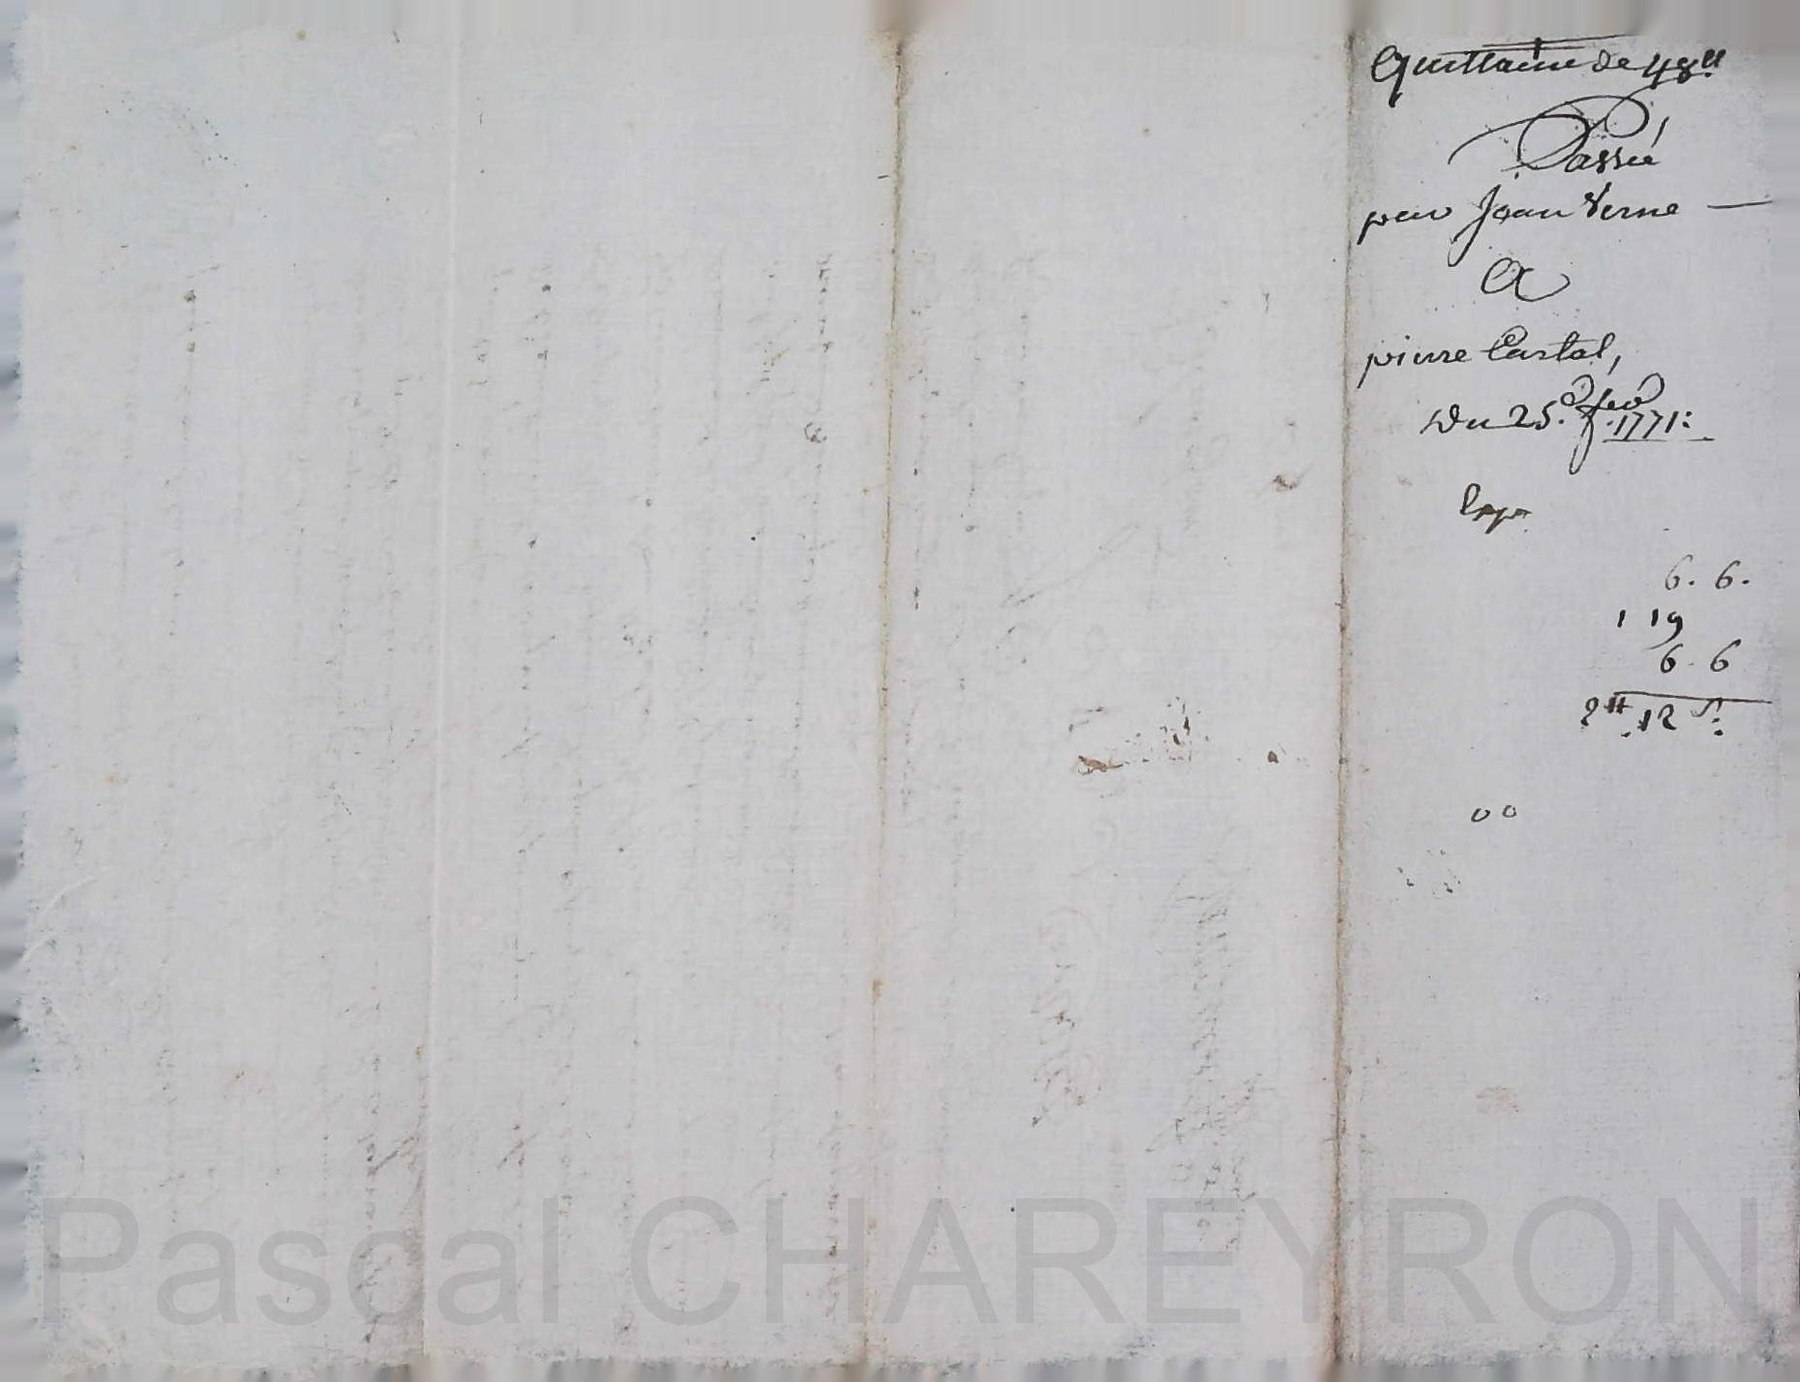 Quittance de 48ll
Passée
par Jean Verne —
A
pierre Cartal,
Du 25.e fev.r 1771:
Exp
6. 6.
1 19
6. 6
2ll 12 s.
00
Pascal CHAREYRON